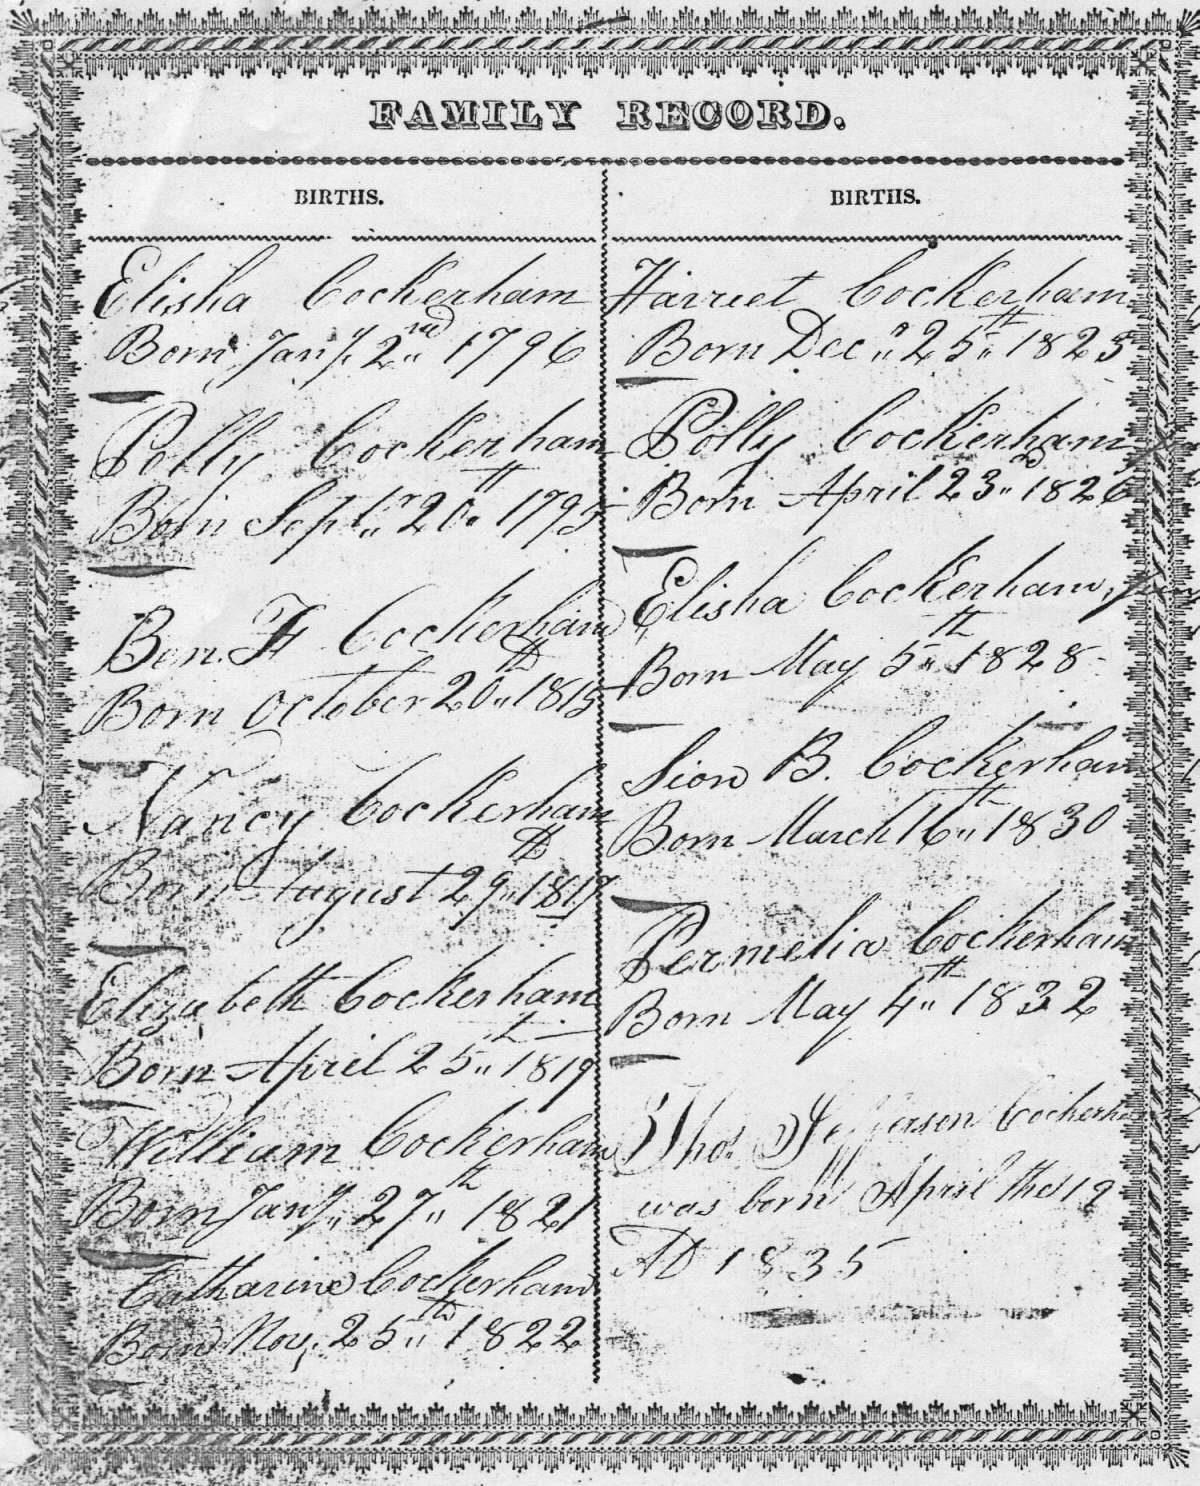 FAMILY RECORD.
BIRTHS.
Elisha Cockerham
Born Jany. 2nd 1796
Polly Cockerham
Born Sept. 20th 1795
Ben. F Cockerham
Born October 20th 1815
Nancy Cockerham
Born August 29th 1817
Elizabeth Cockerham
Born April 25th 1819
William Cockerham
Born Jany. 27th 1821
Catharine Cockerham
Born Nov. 25th 1822
BIRTHS.
Harriet Cockerham
Born Dec. 25th 1825
Polly Cockerham
Born April 23rd 1826
Elisha Cockerham, Jun
Born May 5th 1828
Sion B. Cockerham
Born March 16th 1830
Permelia Cockerham
Born May 4th 1832
Thos. Jefferson Cockerham
was born April the 19
AD 1835